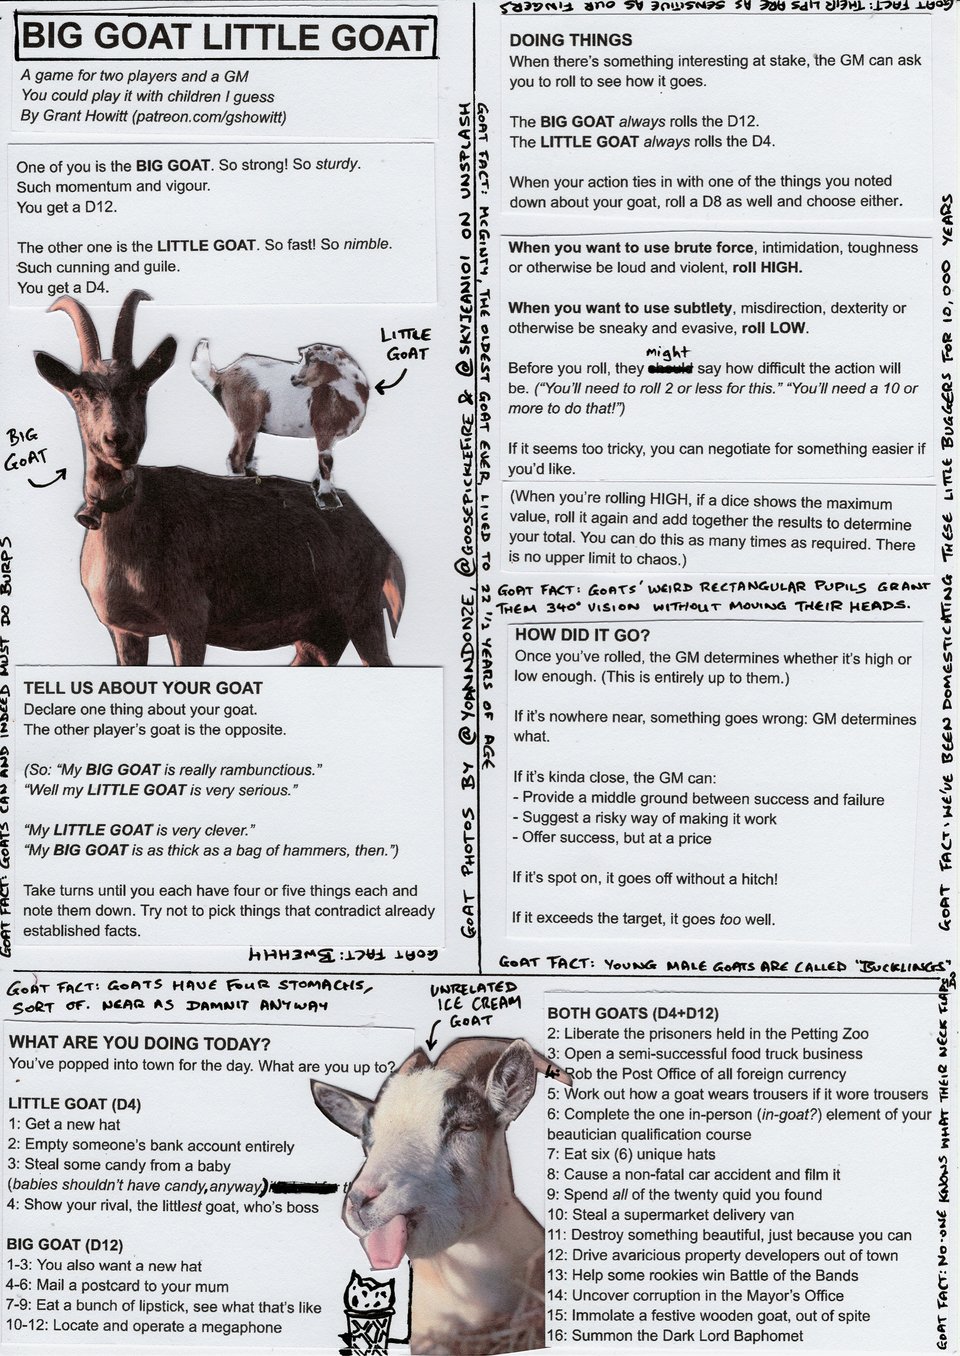 BIG GOAT LITTLE GOAT
A game for two players and a GM
You could play it with children I guess
By Grant Howitt (patreon.com/gshowitt)
One of you is the BIG GOAT. So strong! So sturdy.
Such momentum and vigour.
You get a D12.
The other one is the LITTLE GOAT. So fast! So nimble.
Such cunning and guile.
You get a D4.
LITTLE
GOAT
BIG
GOAT
TELL US ABOUT YOUR GOAT
Declare one thing about your goat.
The other player's goat is the opposite.
(So: "My BIG GOAT is really rambunctious."
"Well my LITTLE GOAT is very serious."
"My LITTLE GOAT is very clever."
"My BIG GOAT is as thick as a bag of hammers, then.")
Take turns until you each have four or five things each and
note them down. Try not to pick things that contradict already
established facts.
GOAT FACT: BWEHHH
GOAT FACT: GOATS CAN AND INDEED MUST DO BURPS
GOAT PHOTOS BY @YOANNDONZE, @GOOSEPICKLEFIRE & @SKYJEANIOI ON UNSPLASH
GOAT FACT: MCGINTY, THE OLDEST GOAT EVER, LIVED TO 22 1/2 YEARS OF AGE
GOAT FACT: THEIR LIPS ARE AS SENSITIVE AS OUR FINGERS
DOING THINGS
When there's something interesting at stake, the GM can ask
you to roll to see how it goes.
The BIG GOAT always rolls the D12.
The LITTLE GOAT always rolls the D4.
When your action ties in with one of the things you noted
down about your goat, roll a D8 as well and choose either.
When you want to use brute force, intimidation, toughness
or otherwise be loud and violent, roll HIGH.
When you want to use subtlety, misdirection, dexterity or
otherwise be sneaky and evasive, roll LOW.
might
Before you roll, they should say how difficult the action will
be. ("You'll need to roll 2 or less for this." "You'll need a 10 or
more to do that!")
If it seems too tricky, you can negotiate for something easier if
you'd like.
(When you're rolling HIGH, if a dice shows the maximum
value, roll it again and add together the results to determine
your total. You can do this as many times as required. There
is no upper limit to chaos.)
GOAT FACT: GOATS' WEIRD RECTANGULAR PUPILS GRANT
THEM 340° VISION WITHOUT MOVING THEIR HEADS.
HOW DID IT GO?
Once you've rolled, the GM determines whether it's high or
low enough. (This is entirely up to them.)
If it's nowhere near, something goes wrong: GM determines
what.
If it's kinda close, the GM can:
- Provide a middle ground between success and failure
- Suggest a risky way of making it work
- Offer success, but at a price
If it's spot on, it goes off without a hitch!
If it exceeds the target, it goes too well.
GOAT FACT: YOUNG MALE GOATS ARE CALLED "BUCKLINGS"
GOAT FACT: WE'VE BEEN DOMESTICATING THESE LITTLE BUGGERS FOR 10,000 YEARS
GOAT FACT: GOATS HAVE FOUR STOMACHS,
SORT OF. NEAR AS DAMNIT ANYWAY
UNRELATED
ICE CREAM
GOAT
WHAT ARE YOU DOING TODAY?
You've popped into town for the day. What are you up to?
LITTLE GOAT (D4)
1: Get a new hat
2: Empty someone's bank account entirely
3: Steal some candy from a baby
(babies shouldn't have candy, anyway)
4: Show your rival, the littlest goat, who's boss
BIG GOAT (D12)
1-3: You also want a new hat
4-6: Mail a postcard to your mum
7-9: Eat a bunch of lipstick, see what that's like
10-12: Locate and operate a megaphone
BOTH GOATS (D4+D12)
2: Liberate the prisoners held in the Petting Zoo
3: Open a semi-successful food truck business
4: Rob the Post Office of all foreign currency
5: Work out how a goat wears trousers if it wore trousers
6: Complete the one in-person (in-goat?) element of your
beautician qualification course
7: Eat six (6) unique hats
8: Cause a non-fatal car accident and film it
9: Spend all of the twenty quid you found
10: Steal a supermarket delivery van
11: Destroy something beautiful, just because you can
12: Drive avaricious property developers out of town
13: Help some rookies win Battle of the Bands
14: Uncover corruption in the Mayor's Office
15: Immolate a festive wooden goat, out of spite
16: Summon the Dark Lord Baphomet
GOAT FACT: NO-ONE KNOWS WHAT THEIR NECK FLAPS DO